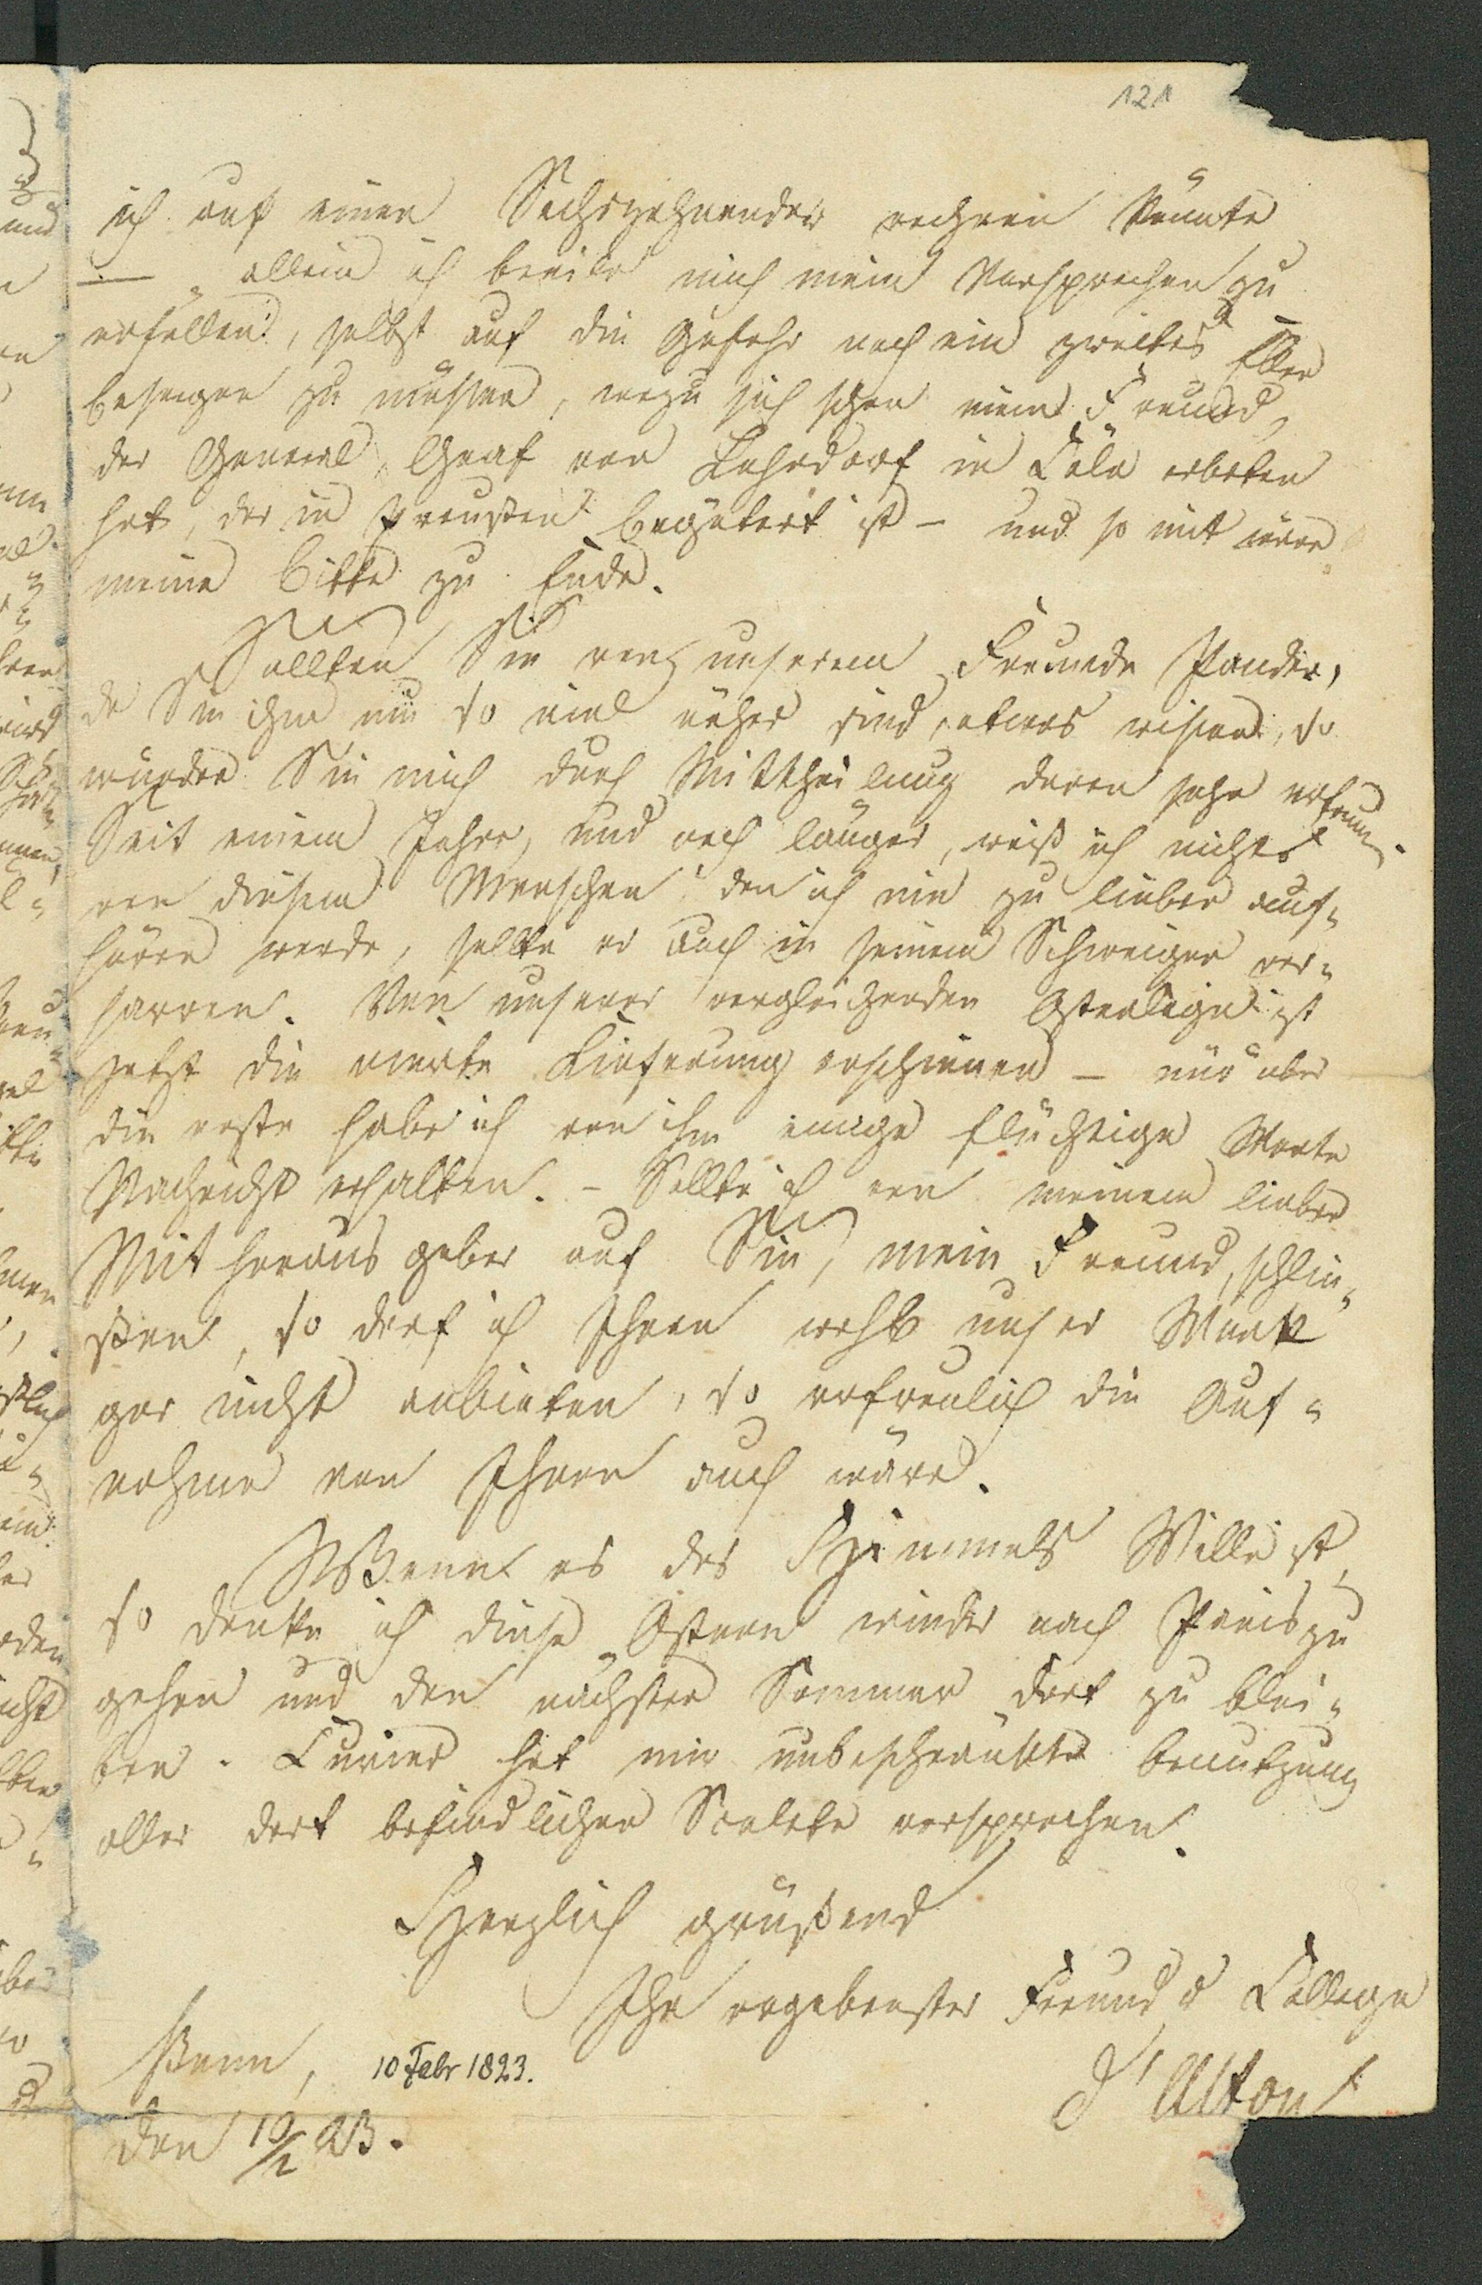 121
ich auf einen Sechszehnender rechnen könnte
– allein ich beeile mich mein Versprechen zu
erfüllen, selbst auf die Gefahr noch ein zweites Ellen
besorgen zu müssen, wozu sich schon mein Freund,
der General, Graf von Lehndorf in Cöln erboten
hat, der in Preussen begütert ist – und so mit wäre
meine Bitte zu Ende.
Sollten Sie von unserem Freunde Pander,
da Sie ihm nun so viel näher sind, etwas wissen, so
würden Sie mich durch Mittheilung davon sehr erfreun.
Seit einem Jahre, und noch länger, weiß ich nichts
von diesem Menschen den ich nie zu lieben auf-
hören werde, sollte er auch in seinem Schweigen ver-
harren. Von unserer vergleichenden Osteologie ist
jetzt die vierte Lieferung erschienen – nur über
die erste habe ich von ihm einige flüchtige Worte
Nachricht erhalten. – Sollte ich von meinem lieben
Mitherausgeber auf Sie, mein Freund, schlie-
ßen, so darf ich Ihnen wohl unser Werk
gar nicht anbieten, so erfreulich die Auf-
nahme von Ihnen auch wäre.
Wenn es des Himmels Wille ist,
so denke ich diese Ostern wieder nach Paris zu
gehen und den nächsten Sommer dort zu blei-
ben. Cuvier hat mir unbeschränkte Benutzung
aller dort befindlichen Scelete versprochen.
Herzlich grüßend
Ihr ergebenster Freund u College
d'Alton
Bonn, 10 Febr 1823.
den 10/2 23.